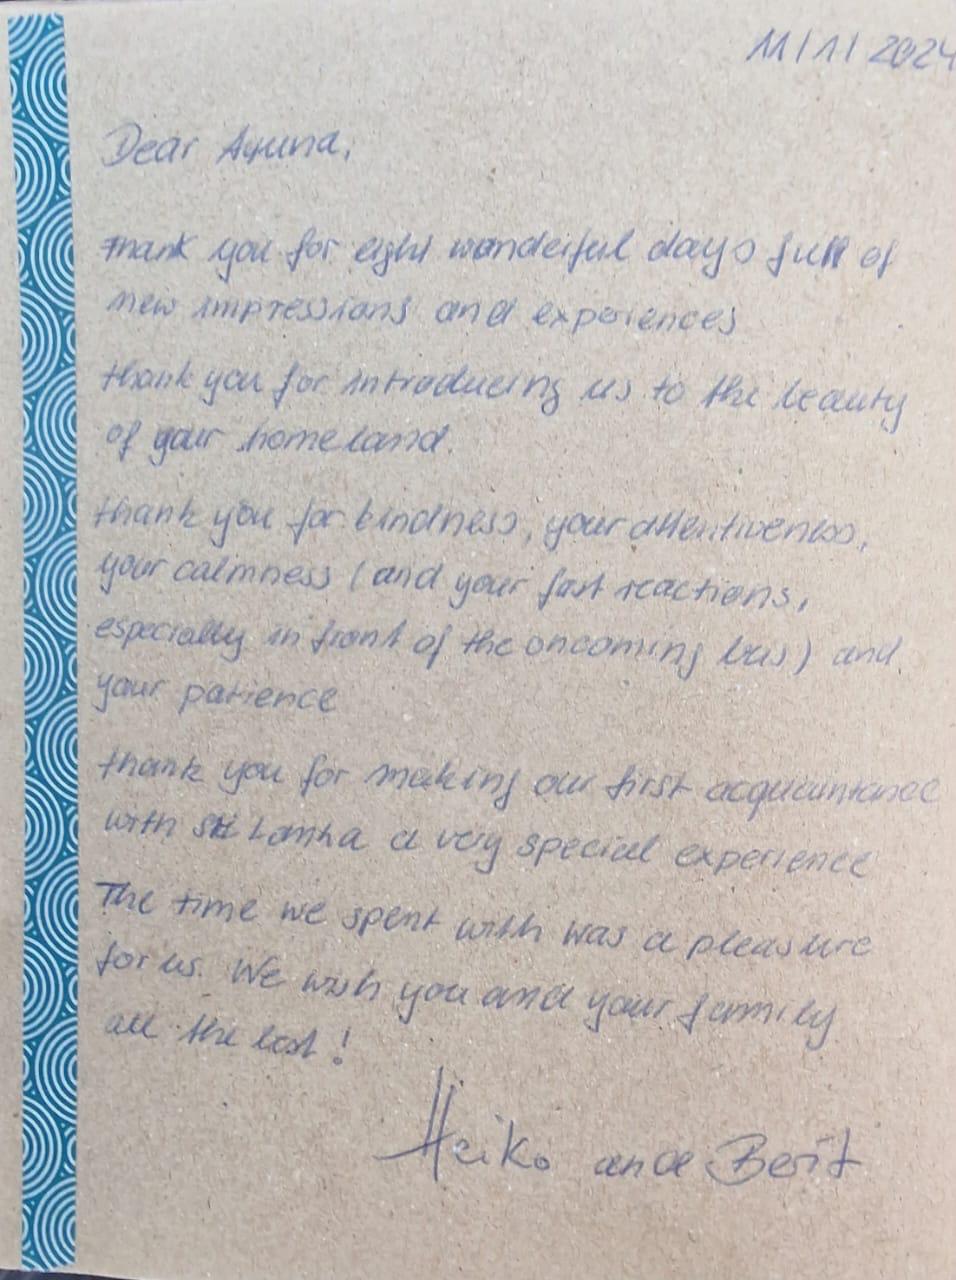 11/1/2024
Dear Ayuna,
Thank you for eight wonderful days full of
new impressions and experiences
thank you for introducing us to the beauty
of your homeland.
thank you for kindness, your attentiveness,
your calmness (and your fast reactions,
especially in front of the oncoming bus) and
your patience
thank you for making our first acquaintance
with Sri Lanka a very special experience
The time we spent with was a pleasure
for us. We wish you and your family
all the best!
Heiko and Berit